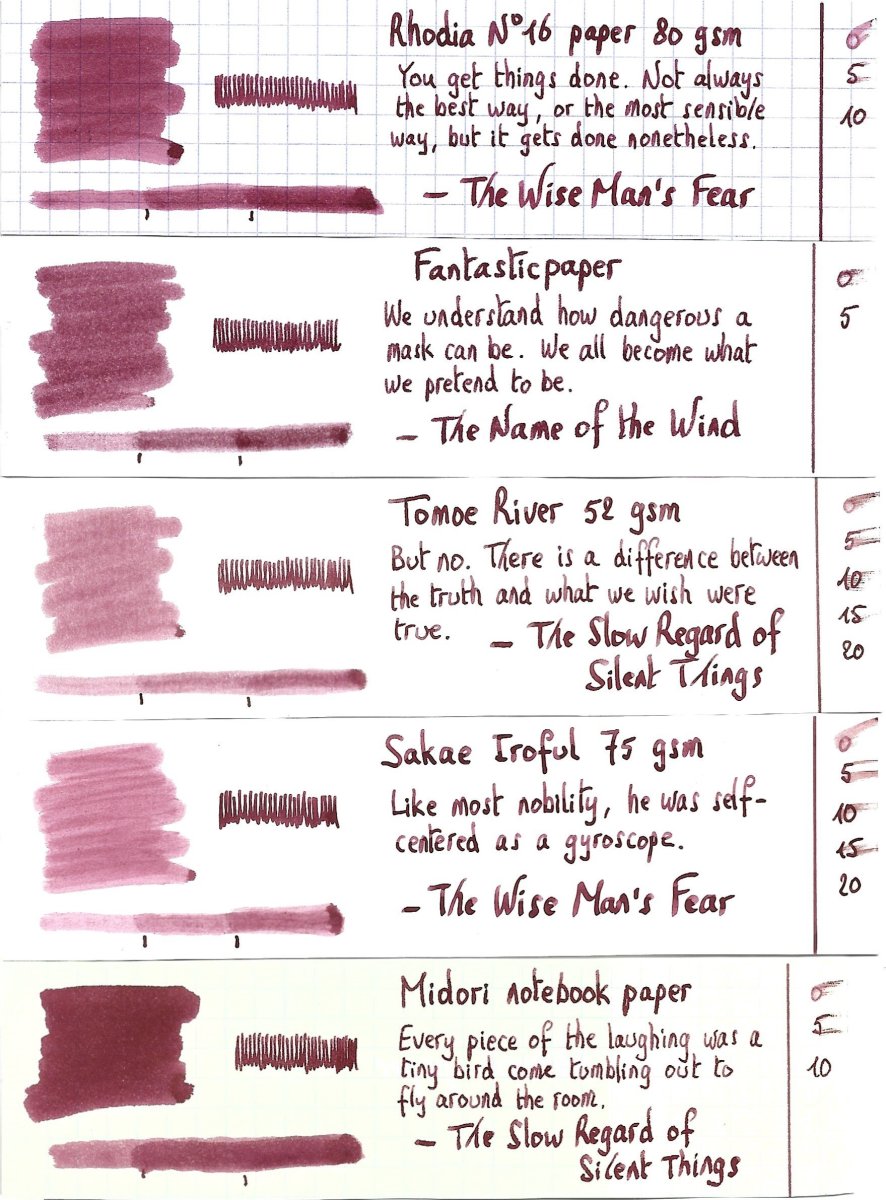 Rhodia N°16 paper 80 gsm
You get things done. Not always
the best way, or the most sensible
way, but it gets done nonetheless.
— The Wise Man's Fear
0
5
10
Fantasticpaper
We understand how dangerous a
mask can be. We all become what
we pretend to be.
— The Name of the Wind
0
5
Tomoe River 52 gsm
But no. There is a difference between
the truth and what we wish were
true. — The Slow Regard of
Silent Things
0
5
10
15
20
Sakae Iroful 75 gsm
Like most nobility, he was self-
centered as a gyroscope.
— The Wise Man's Fear
0
5
10
15
20
Midori notebook paper
Every piece of the laughing was a
tiny bird come tumbling out to
fly around the room.
— The Slow Regard of
Silent Things
0
5
10